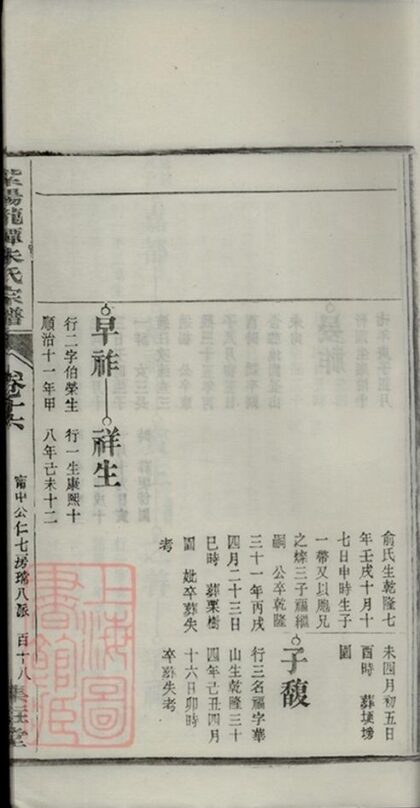 未四月初五日
酉時 葬埂塝
園
子馥
行三名福字華
山生乾隆三十
四年己丑四月
十六日卯時
卒葬失考
俞氏生乾隆七
年壬戌十月十
七日申時生子
一帶又以胞兄
之煒三子福繼
嗣 公卒乾隆
三十一年丙戌
四月二十三日
巳時 葬栗樹
園 妣卒葬失
考
早祚
祥生
行二字伯榮生
順治十一年甲
行一生康熙十
八年己未十二
紫陽龍潭朱氏宗譜
卷十六
甯中公仁七房瑞八派 百十八
上海圖書館藏